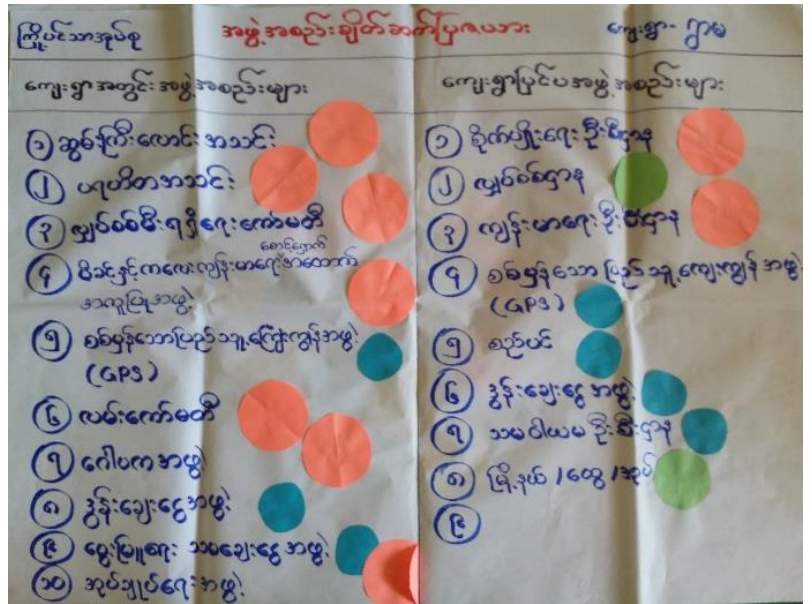 ကြို့ပင်သာအုပ်စု
အဖွဲ့အစည်းချိတ်ဆက်ပြဇယား
ကျေးရွာ- ဌာမ
ကျေးရွာအတွင်းအဖွဲ့အစည်းများ
၁ ဆွမ်းကြီးလောင်းအသင်း
၂ ပရဟိတအသင်း
၃ လျှပ်စစ်မီးရရှိရေးကော်မတီ
စောင့်ရှောက်
၄ မိခင်နှင့်ကလေးကျန်းမာရေးအထောက်
အကူပြုအဖွဲ့
၅ စစ်မှန်သောပြည်သူ့ကြေးကျွန်အဖွဲ့
(GPS)
၆ လမ်းကော်မတီ
၇ ဂေါပကအဖွဲ့
၈ ဒွန်းချေးငွေအဖွဲ့
၉ မွေးမြူရေး သမချေးငွေအဖွဲ့
၁၀ အုပ်ချုပ်ရေးအဖွဲ့
ကျေးရွာပြင်ပအဖွဲ့အစည်းများ
၁ စိုက်ပျိုးရေးဦးစီးဌာန
၂ လျှပ်စစ်ဌာန
၃ ကျန်းမာရေးဦးစီးဌာန
၄ စစ်မှန်သောပြည်သူ့ကျေးကျွန်အဖွဲ့
(GPS)
၅ စည်ပင်
၆ ဒွန်းချေးငွေအဖွဲ့
၇ သမဝါယမဦးစီးဌာန
၈ မြို့နယ်/ထွေ/အုပ်
၉